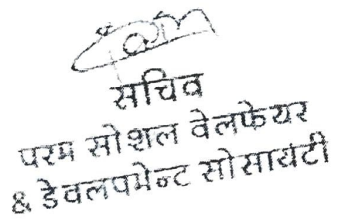 सचिव
परम सोशल वेलफेयर
& डेवलपमेन्ट सोसायटी